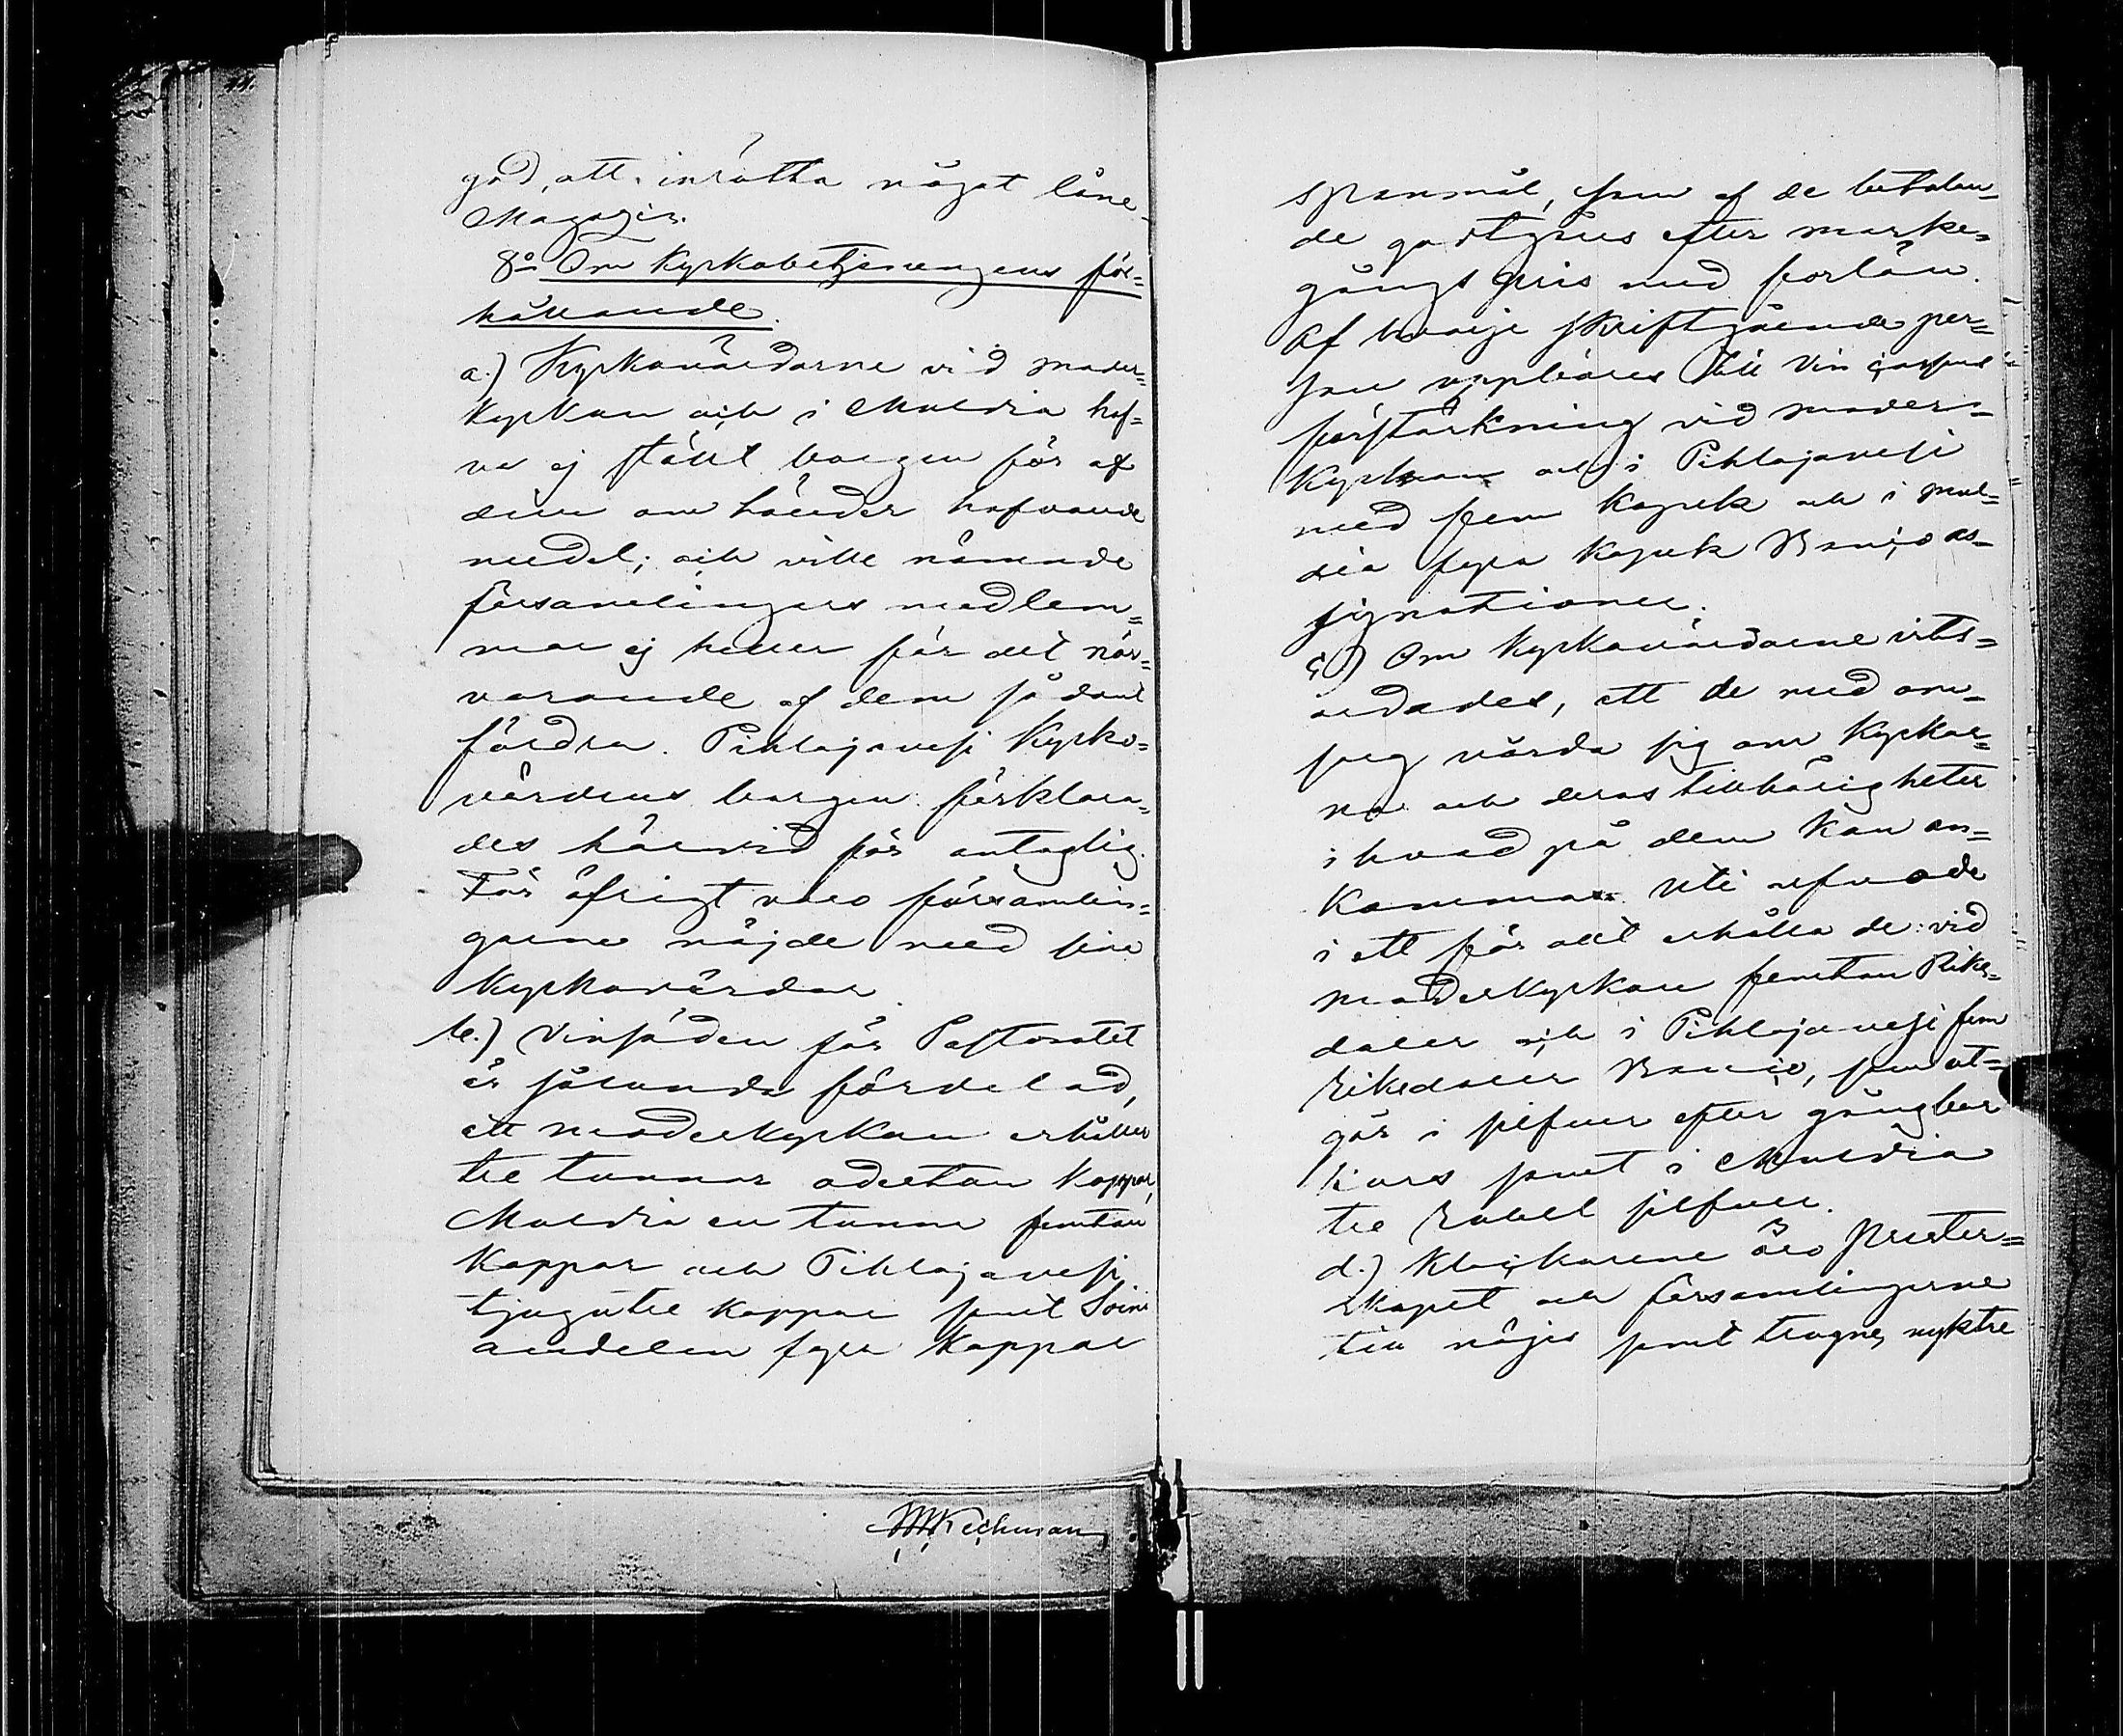 god, att inrätta något låne-
Magazin.
8:o Om Kyrkobetjeningens för-
hållande.
a.) Kyrkovärdarne vid moder-
kyrkan och i Multia haf-
va ej stält borgen för af
dem om händer hafvande
medel; och ville nämnde
församlingars medlem-
mar ej heller för det när-
varande af dem sådant
fordra. Pihlajavesi Kyrko-
värdens borgen förklara-
des härvid för antaglig.
För öfrigt voro försam̅lin-
garne nöjde med sine
Kyrkovärdar.
b.) Vinsäden för Pastoratet
är sålunda fördelad,
att moderkyrkan erhåller
tre tunnor aderton kappar,
Multia en tunna femton
kappar och Pihlajavesi
tjugutre kappar samt Soini
andelen fyra kappar
spanmål, som af de betalan-
de godtgöres efter marke-
gångs pris med forlön.
Af hvarje skriftgående per-
son uppbäres till Vin cassans
förstärkning vid moder-
kyrkan och i Pihlajavesi
med fem kopek och i Mul-
tia fyra kopek Banco as-
signationer.
c.) Om Kyrkovärdarne vits-
ordades, att de med om-
sorg vårda sig om kyrkor-
na och deras tillhörigheter
i hvad på dem kan an-
komma. Uti arfvode
i ett för allt erhålla de: vid
moderkyrkan femton Riks-
daler och i Pihlajavesi fem
Riksdaler Banco, som ut-
går i silfver efter gångbar
kurs samt i Multia
tre Rubel silfver.
d.) Klockarene äro Prester-
skapet och församlingarne
till nöjes samt trogne, nyktre
MWKechman